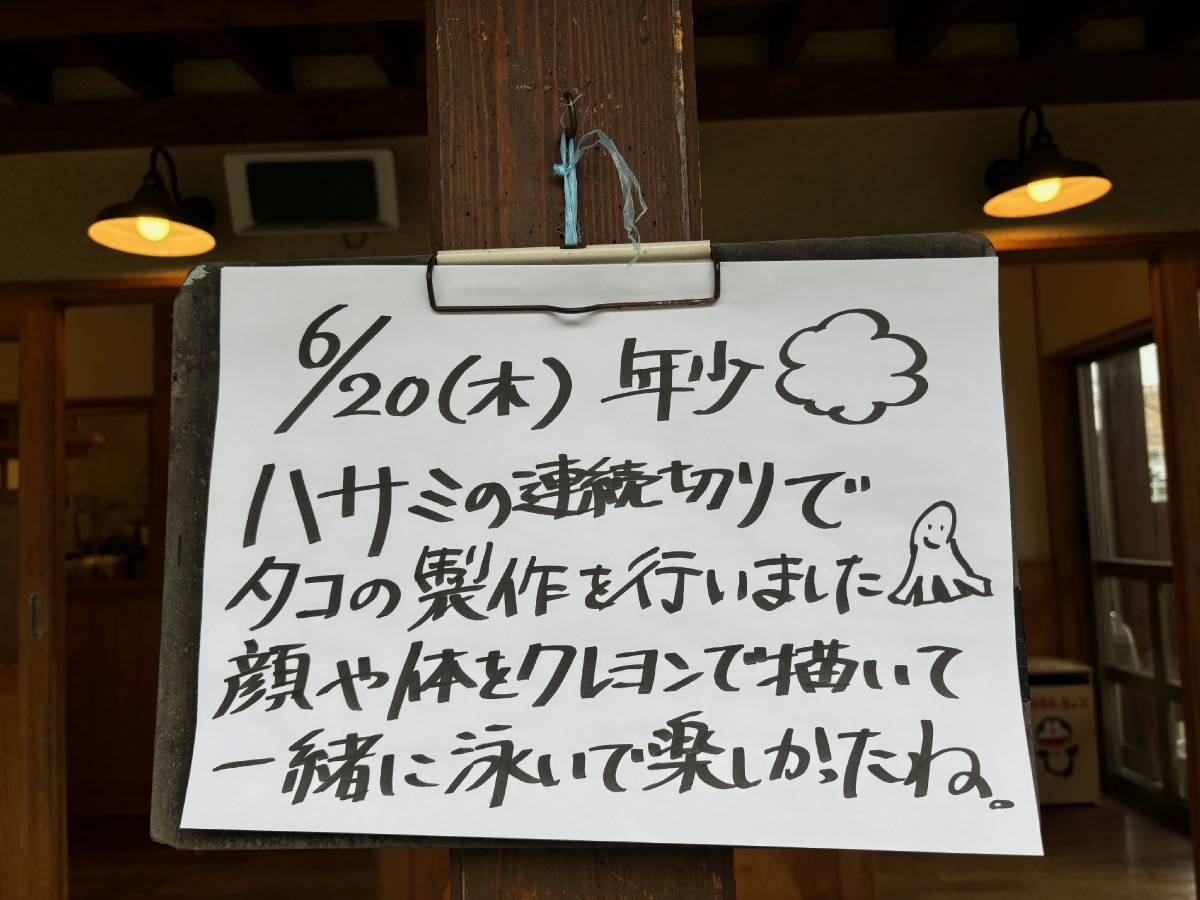 6/20(木) 年少
ハサミの連続切りで
タコの製作を行いました
顔や体をクレヨンで描いて
一緒に泳いで楽しかったね。